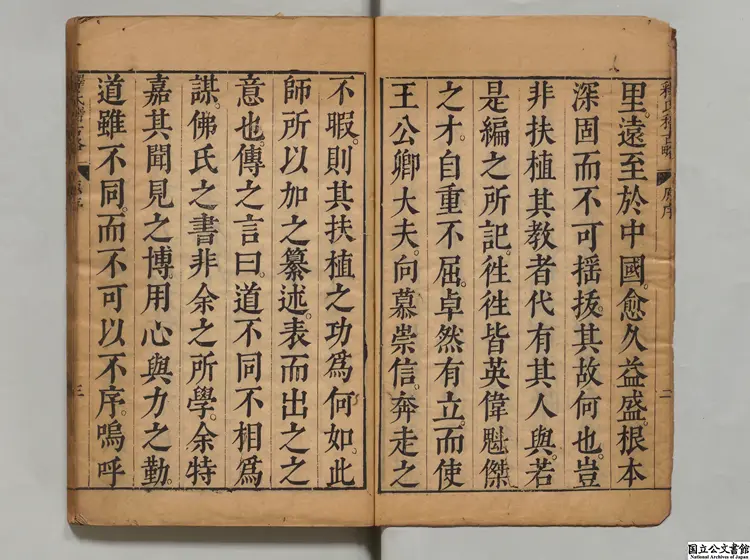 里。遠至於中國。愈久益盛。根本
深固而不可揺拔。其故何也。豈
非扶植其教者代有其人與。若
是編之所記。徃徃皆英偉魁傑
之才。自重不屈。卓然有立。而使
王公卿大夫。向慕崇信。奔走之
釋氏稽古略
原序
二
不暇。則其扶植之功爲何如。此
師所以加之纂述。表而出之之
意也。傳之言曰。道不同不相爲
謀。佛氏之書非余之所學。余特
嘉其聞見之博。用心與力之勤。
道雖不同。而不可以不序。嗚呼
三
国立公文書館
National Archives of Japan